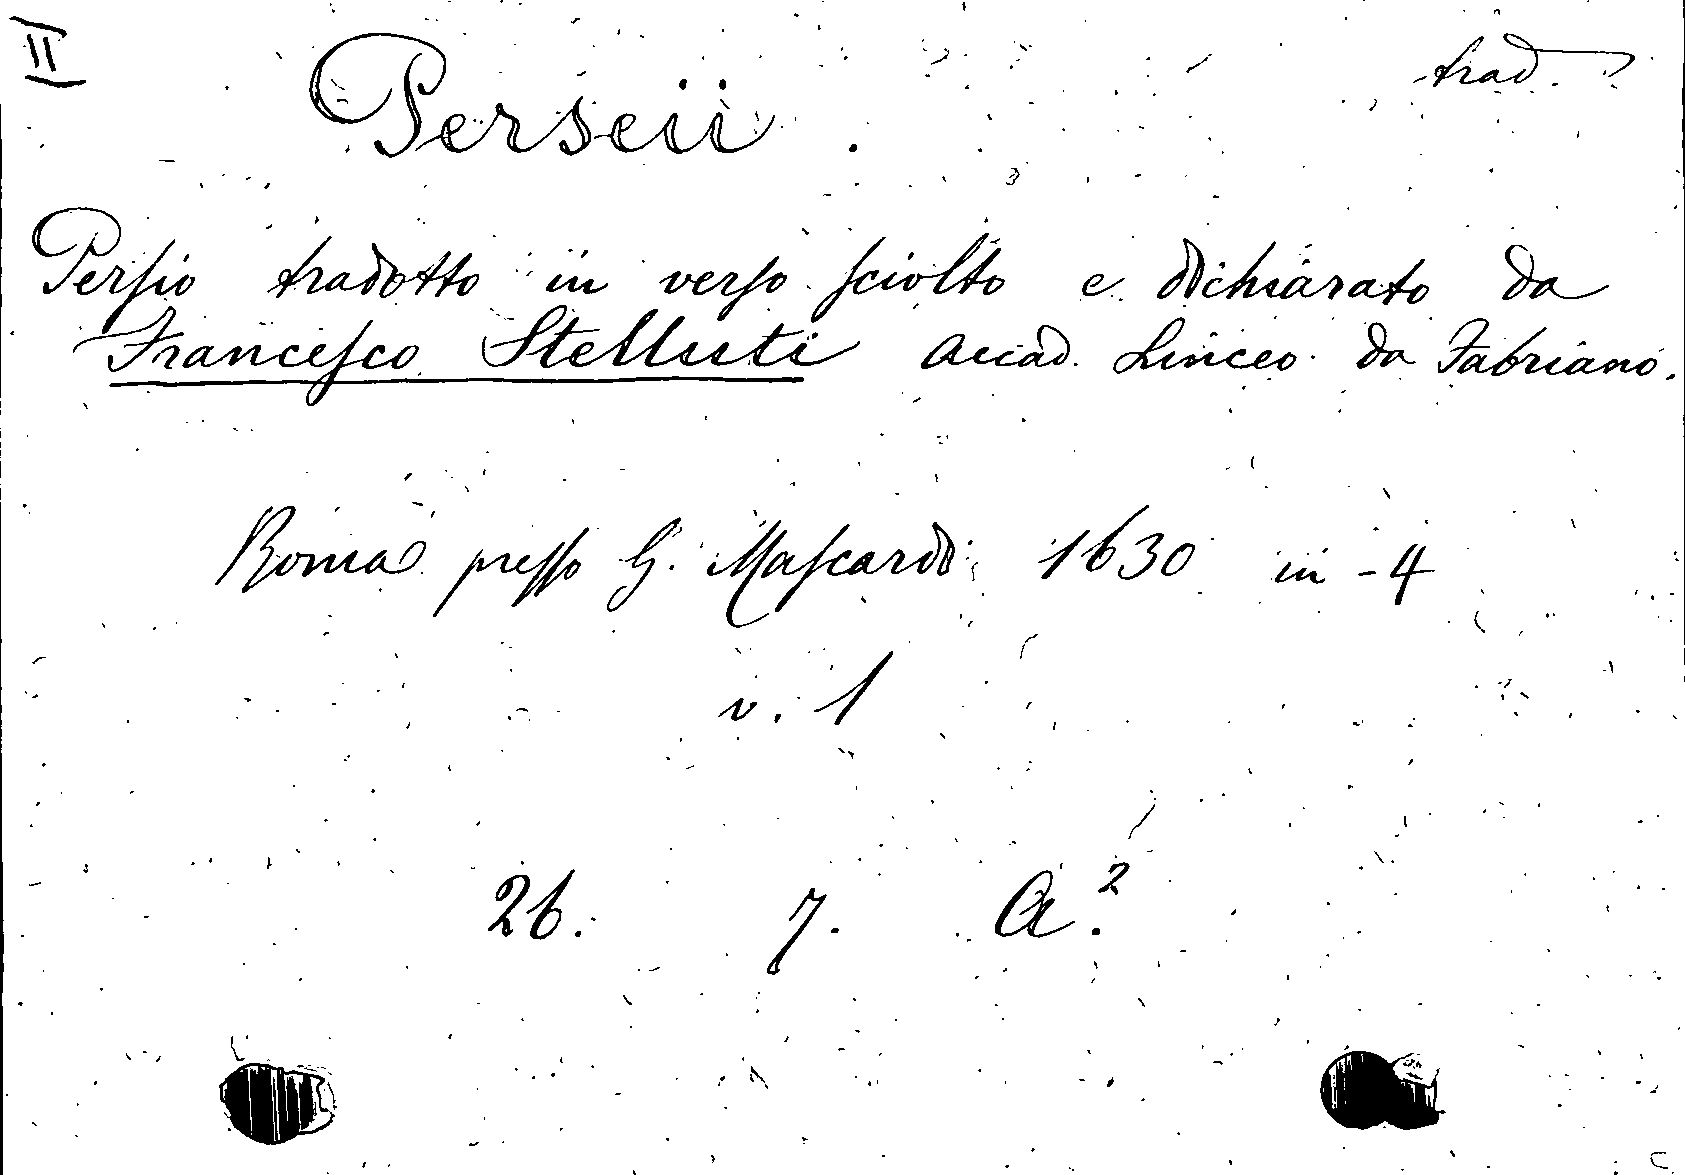 II
trad.
Perseii.
Perſio tradotto in verſo ſciolto e dichiarato da
Franceſco Stelluti Accad. Linceo da Fabriano.
Roma preſſo G. Maſcardi 1630 in-4
v. 1
26. 7. A.²